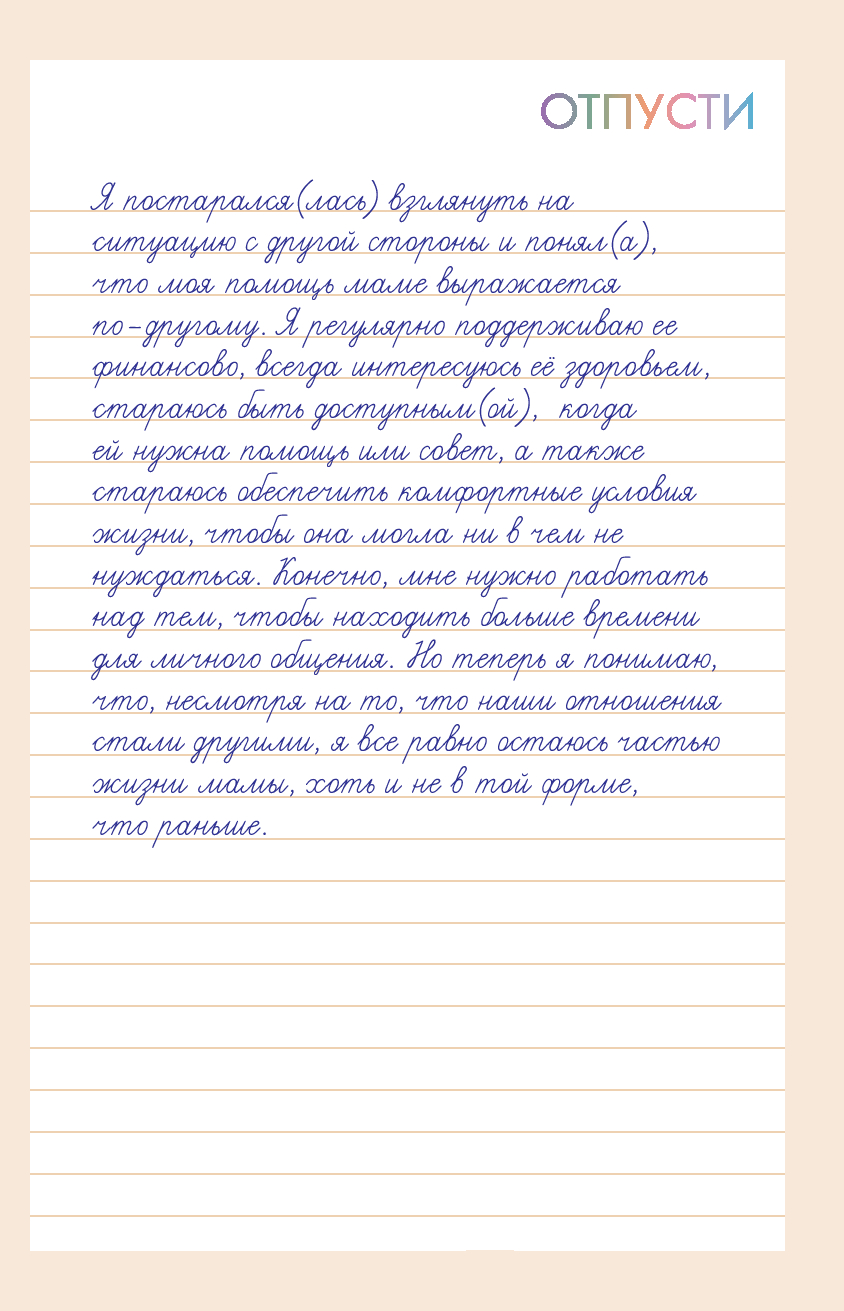 ОТПУСТИ
Я постарался(лась) взглянуть на
ситуацию с другой стороны и понял(а),
что моя помощь маме выражается
по-другому. Я регулярно поддерживаю ее
финансово, всегда интересуюсь её здоровьем,
стараюсь быть доступным(ой), когда
ей нужна помощь или совет, а также
стараюсь обеспечить комфортные условия
жизни, чтобы она могла ни в чем не
нуждаться. Конечно, мне нужно работать
над тем, чтобы находить больше времени
для личного общения. Но теперь я понимаю,
что, несмотря на то, что наши отношения
стали другими, я все равно остаюсь частью
жизни мамы, хоть и не в той форме,
что раньше.